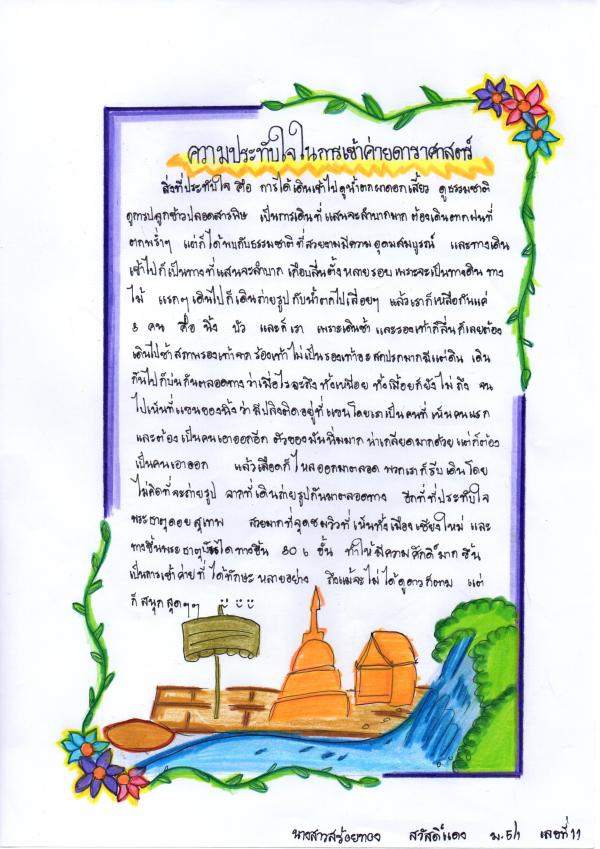 ความประทับใจในการเข้าค่ายดาราศาสตร์
สิ่งที่ประทับใจ คือ การได้เดินเข้าไปดูน้ำตกผาดอกเสี้ยว ดูธรรมชาติ
ดูการปลูกข้าวปลอดสารพิษ เป็นการเดินที่แสนจะลำบากมาก ต้องเดินตากฝนที่
ตกพรำๆ แต่ก็ได้พบกับธรรมชาติที่สวยงามมีความอุดมสมบูรณ์ และทางเดิน
เข้าไปก็เป็นทางที่แสนจะลำบาก เกือบลื่นตั้งหลายรอบ เพราะจะเป็นทางดิน ทาง
ไม้ แรกๆ เดินไปก็เดินถ่ายรูปกับน้ำตกไปเรื่อยๆ แล้วเราก็เหลือกันแค่
3 คน คือ นิ้ง บัว และก็เรา เพราะเดินช้า และรองเท้าก็ลื่นก็เลยต้อง
เดินไปช้าสภาพรองเท้าจากรองเท้าไม่เป็นรองเท้าจะสกปรกมากมีแต่ดิน เดิน
กันไปก็บ่นกันตลอดทางว่าเมื่อไรจะถึงทั้งเหนื่อย ทั้งเมื่อยก็ยังไม่ถึง จน
ไปเห็นที่แขนของนิ้งว่ามีปลิงติดอยู่ที่แขนโดยเราเป็นคนที่เห็นคนแรก
และต้องเป็นคนเอาออกอีก ตัวของมันนิ่มมาก น่าเกลียดมากด้วย แต่ก็ต้อง
เป็นคนเอาออก แล้วเลือดก็ไหลออกมาตลอด พวกเราก็รีบเดินโดย
ไม่คิดที่จะถ่ายรูป จากที่เดินถ่ายรูปกันมาตลอดทาง อีกที่ที่ประทับใจ
พระธาตุดอยสุเทพ สวยมากที่จุดชมวิวที่เห็นทั้งเมืองเชียงใหม่ และ
ทางขึ้นพระธาตุบันไดทางขึ้น 306 ขั้น ทำให้มีความศักดิ์มากขึ้น
เป็นการเข้าค่ายที่ได้ทักษะหลายอย่าง ถึงแม้จะไม่ได้ดูดาวก็ตาม แต่
ก็สนุกสุดๆๆ
นางสาวสร้อยทอง สวัสดิ์แดง ม.5/1 เลขที่ 11